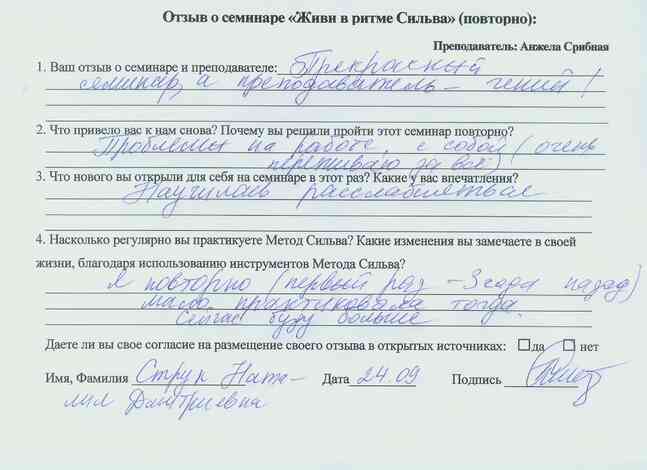 Отзыв о семинаре «Живи в ритме Сильва» (повторно):
Преподаватель: Анжела Срибная
1. Ваш отзыв о семинаре и преподавателе: Прекрасный
семинар, а преподаватель – гений!
2. Что привело вас к нам снова? Почему вы решили пройти этот семинар повторно?
Проблемы на работе, с собой (очень
переживаю за всё)
3. Что нового вы открыли для себя на семинаре в этот раз? Какие у вас впечатления?
Научилась расслабляться
4. Насколько регулярно вы практикуете Метод Сильва? Какие изменения вы замечаете в своей
жизни, благодаря использованию инструментов Метода Сильва?
Я повторно (первый раз – 3 года назад)
мало практиковала тогда.
Сейчас буду больше
Даете ли вы свое согласие на размещение своего отзыва в открытых источниках: да нет
Имя, Фамилия Струк Ната- Дата 24.09 Подпись
лия Дмитриевна